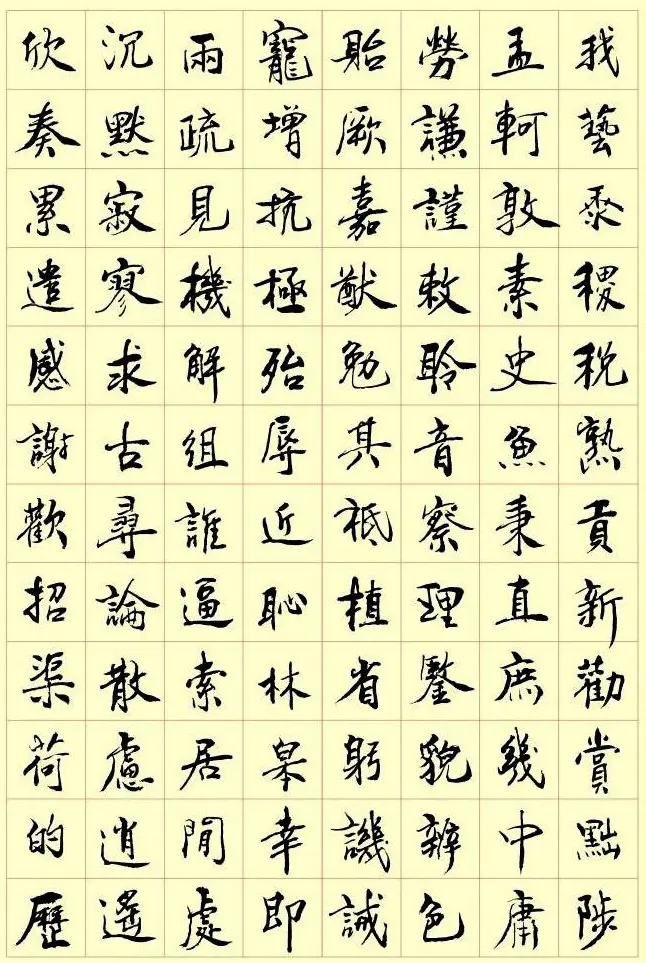 我藝黍稷稅熟貢新勸賞黜陟
孟軻敦素史魚秉直庶幾中庸
勞謙謹敕聆音察理鑒貌辨色
貽厥嘉猷勉其祗植省躬譏誡
寵增抗極殆辱近恥林皋幸即
兩疏見機解組誰逼索居閒處
沉默寂寥求古尋論散慮逍遙
欣奏累遣感謝歡招渠荷的歷